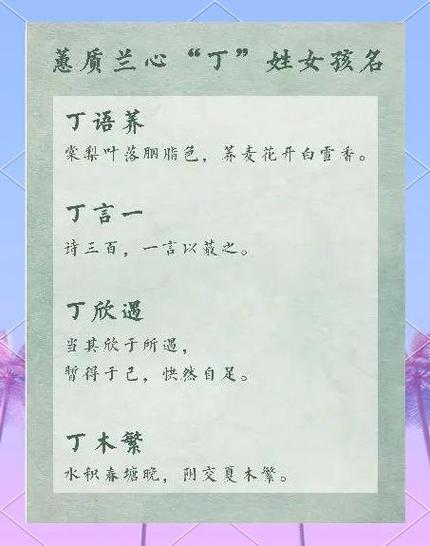 蕙质兰心“丁”姓女孩名
丁语荞
棠梨叶落胭脂色，荞麦花开白雪香。
丁言一
诗三百，一言以蔽之。
丁欣遇
当其欣于所遇，
暂得于己，怏然自足。
丁木繁
水积春塘晚，阴交夏木繁。